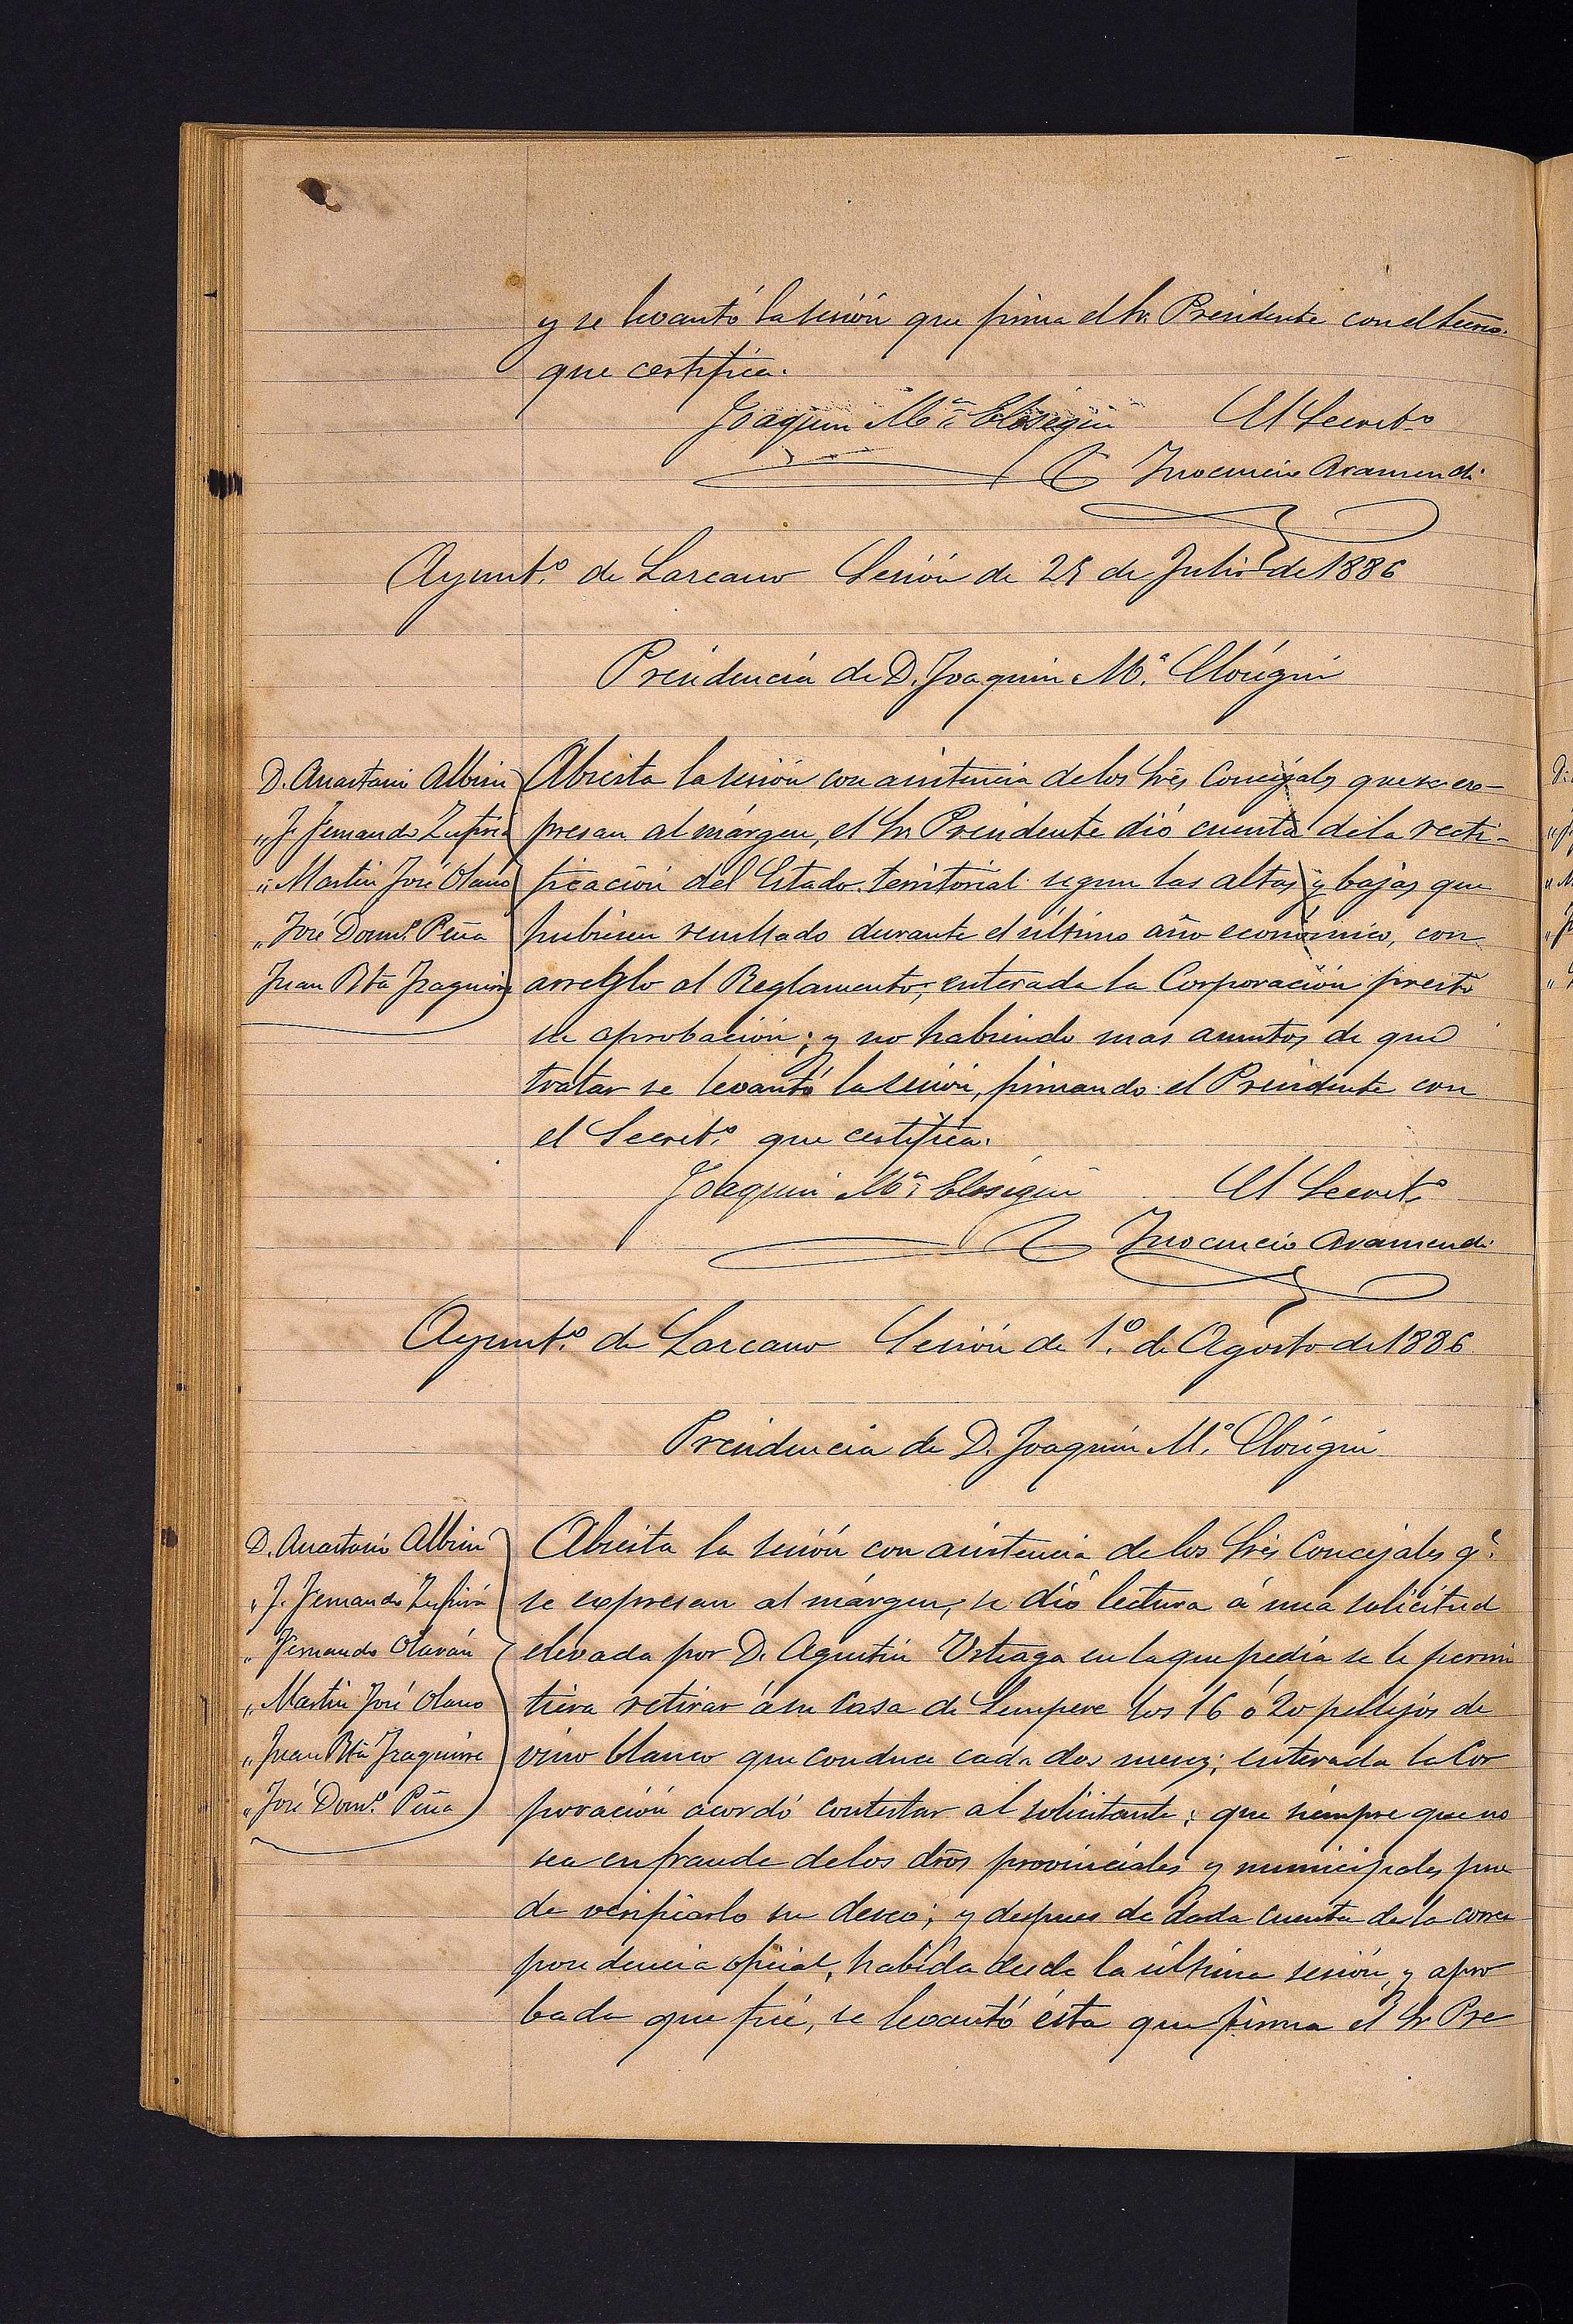 y se levantó la sesión que firma el Sr. Presidente con el Secreto.
que certifica.
Joaquin Mª Elosegui El Secret.º
Inocencio Aramendi
Ayunt.º de Lazcano Sesión de 25 de Julio de 1886
Presidencia de D. Joaquin M.ª Elósegui
D. Anastasio Albisu
" J. Fernando Zufiria
" Martin José Olano
" José Dom.º Peña
Juan Bta Izaguirre
Abierta la sesión con asistencia de los Srēs Concejales que se ex-
presan al márgen, el Sr. Presidente dió cuenta de la recti-
ficación del Estado territorial segun las altas y bajas que
hubiesen resultado durante el último año económico, con
arreglo al Reglamento; enterada la Corporación prestó
su aprobación; y no habiendo mas asuntos de que
tratar se levantó la sesión, firmando el Presidente con
el Secret.º que certifica.
Joaquin Mª Elosegui El Secret.º
Inocencio Aramendi
Ayunt.º de Lazcano Sesión de 1.º de Agosto de 1886
Presidencia de D. Joaquin M.ª Elósegui
D. Anastasio Albisu
" J. Fernando Zufiria
" Fernando Olarán
" Martin José Olano
" Juan Bta Izaguirre
" José Dom.º Peña
Abierta la sesión con asistencia de los Srēs Concejales q.e
se expresan al márgen, se dió lectura á una solicitud
elevada por D. Agustin Usteaga en la que pedía se le permi
tiera retirar á su casa de Sempere los 16 ó 20 pellejos de
vino blanco que conduce cada dos meses; enterada la Cor
poración acordó contestar al solicitante; que siempre que no
sea en fraude de los drōs provinciales y municipales pue
de verificarlo su deseo; y despues de dada cuenta de la corres
pondencia oficial, habida desde la última sesión, y apro
bada que fué, se levantó ésta que firma el Sr. Pre